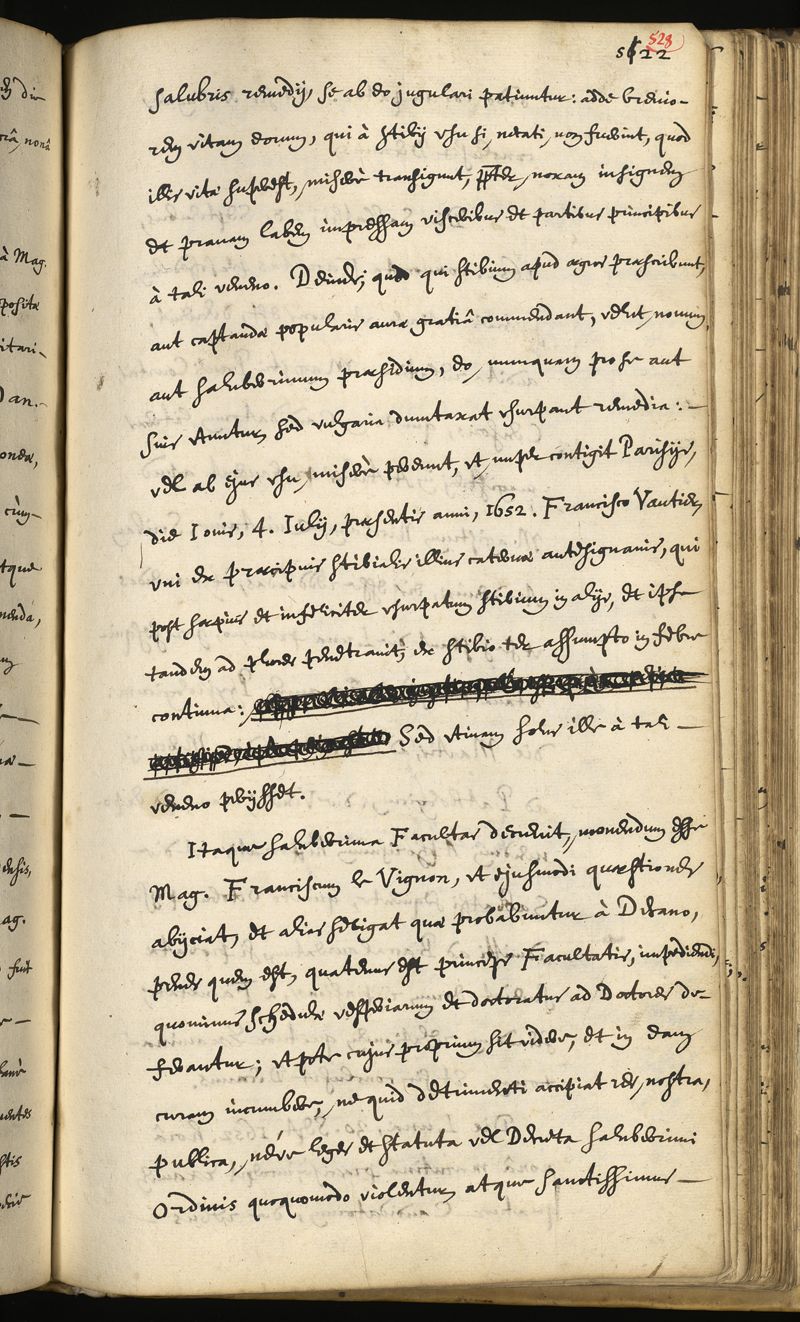 528
522
salubris remedij, se ab eo jugulari patiuntur: adde brevio-
rem vitam eorum, qui à stibij vsu si, necati, non fuerint, quod
illis vitæ superest, miserè transigunt, ppter, noxam insignem
et pravam labem impressam visceribus et partibus principibus
à tali veneno. Deinde, quod qui stibium apud ægros præscribunt,
aut captandæ popularis auræ gratiâ commendant, velut, novum,
aut saluberrimum præsidium, eo, numquam pro se aut
suis vtuntur, sed vulgaria dumtaxat vsurpant remedia: -
vel ab ejus vsu, miserè pereunt, vt nuper contigit Parisijs,
die Iovis, 4. Iulij, præsentis anni, 1652. Francisco Vautier,
vni ex præcipuis stibialis illius catervæ antesignanis, qui
post sæpius et infeliciter vsurpatum stibium in alijs, et ipse
tandem ad plures penetravit, ex stibio ter assumpto in febre
continua:
Sed vtinam solus ille à tali -
veneno perijsset.
Itaque saluberrima Facultas decrevit, monendum esse
Mag. Franciscum le Vignon, vt ejusmodi quæstiones
abijciat, et alias seligat quæ probabuntur à Decano,
penes quem est, quatenus est princeps Facultatis, impediendi,
quominus schedulæ vesperiarum et doctoratus ad Doctores de-
ferantur; vtpote cujus proprium sit videre, et in eam
curam incumbere, ne quid detrimenti accipiat res, nostra,
publica, néve leges et statuta vel Decreta saluberrimi
Ordinis quoquomodo violentur, atque sanctissimus -